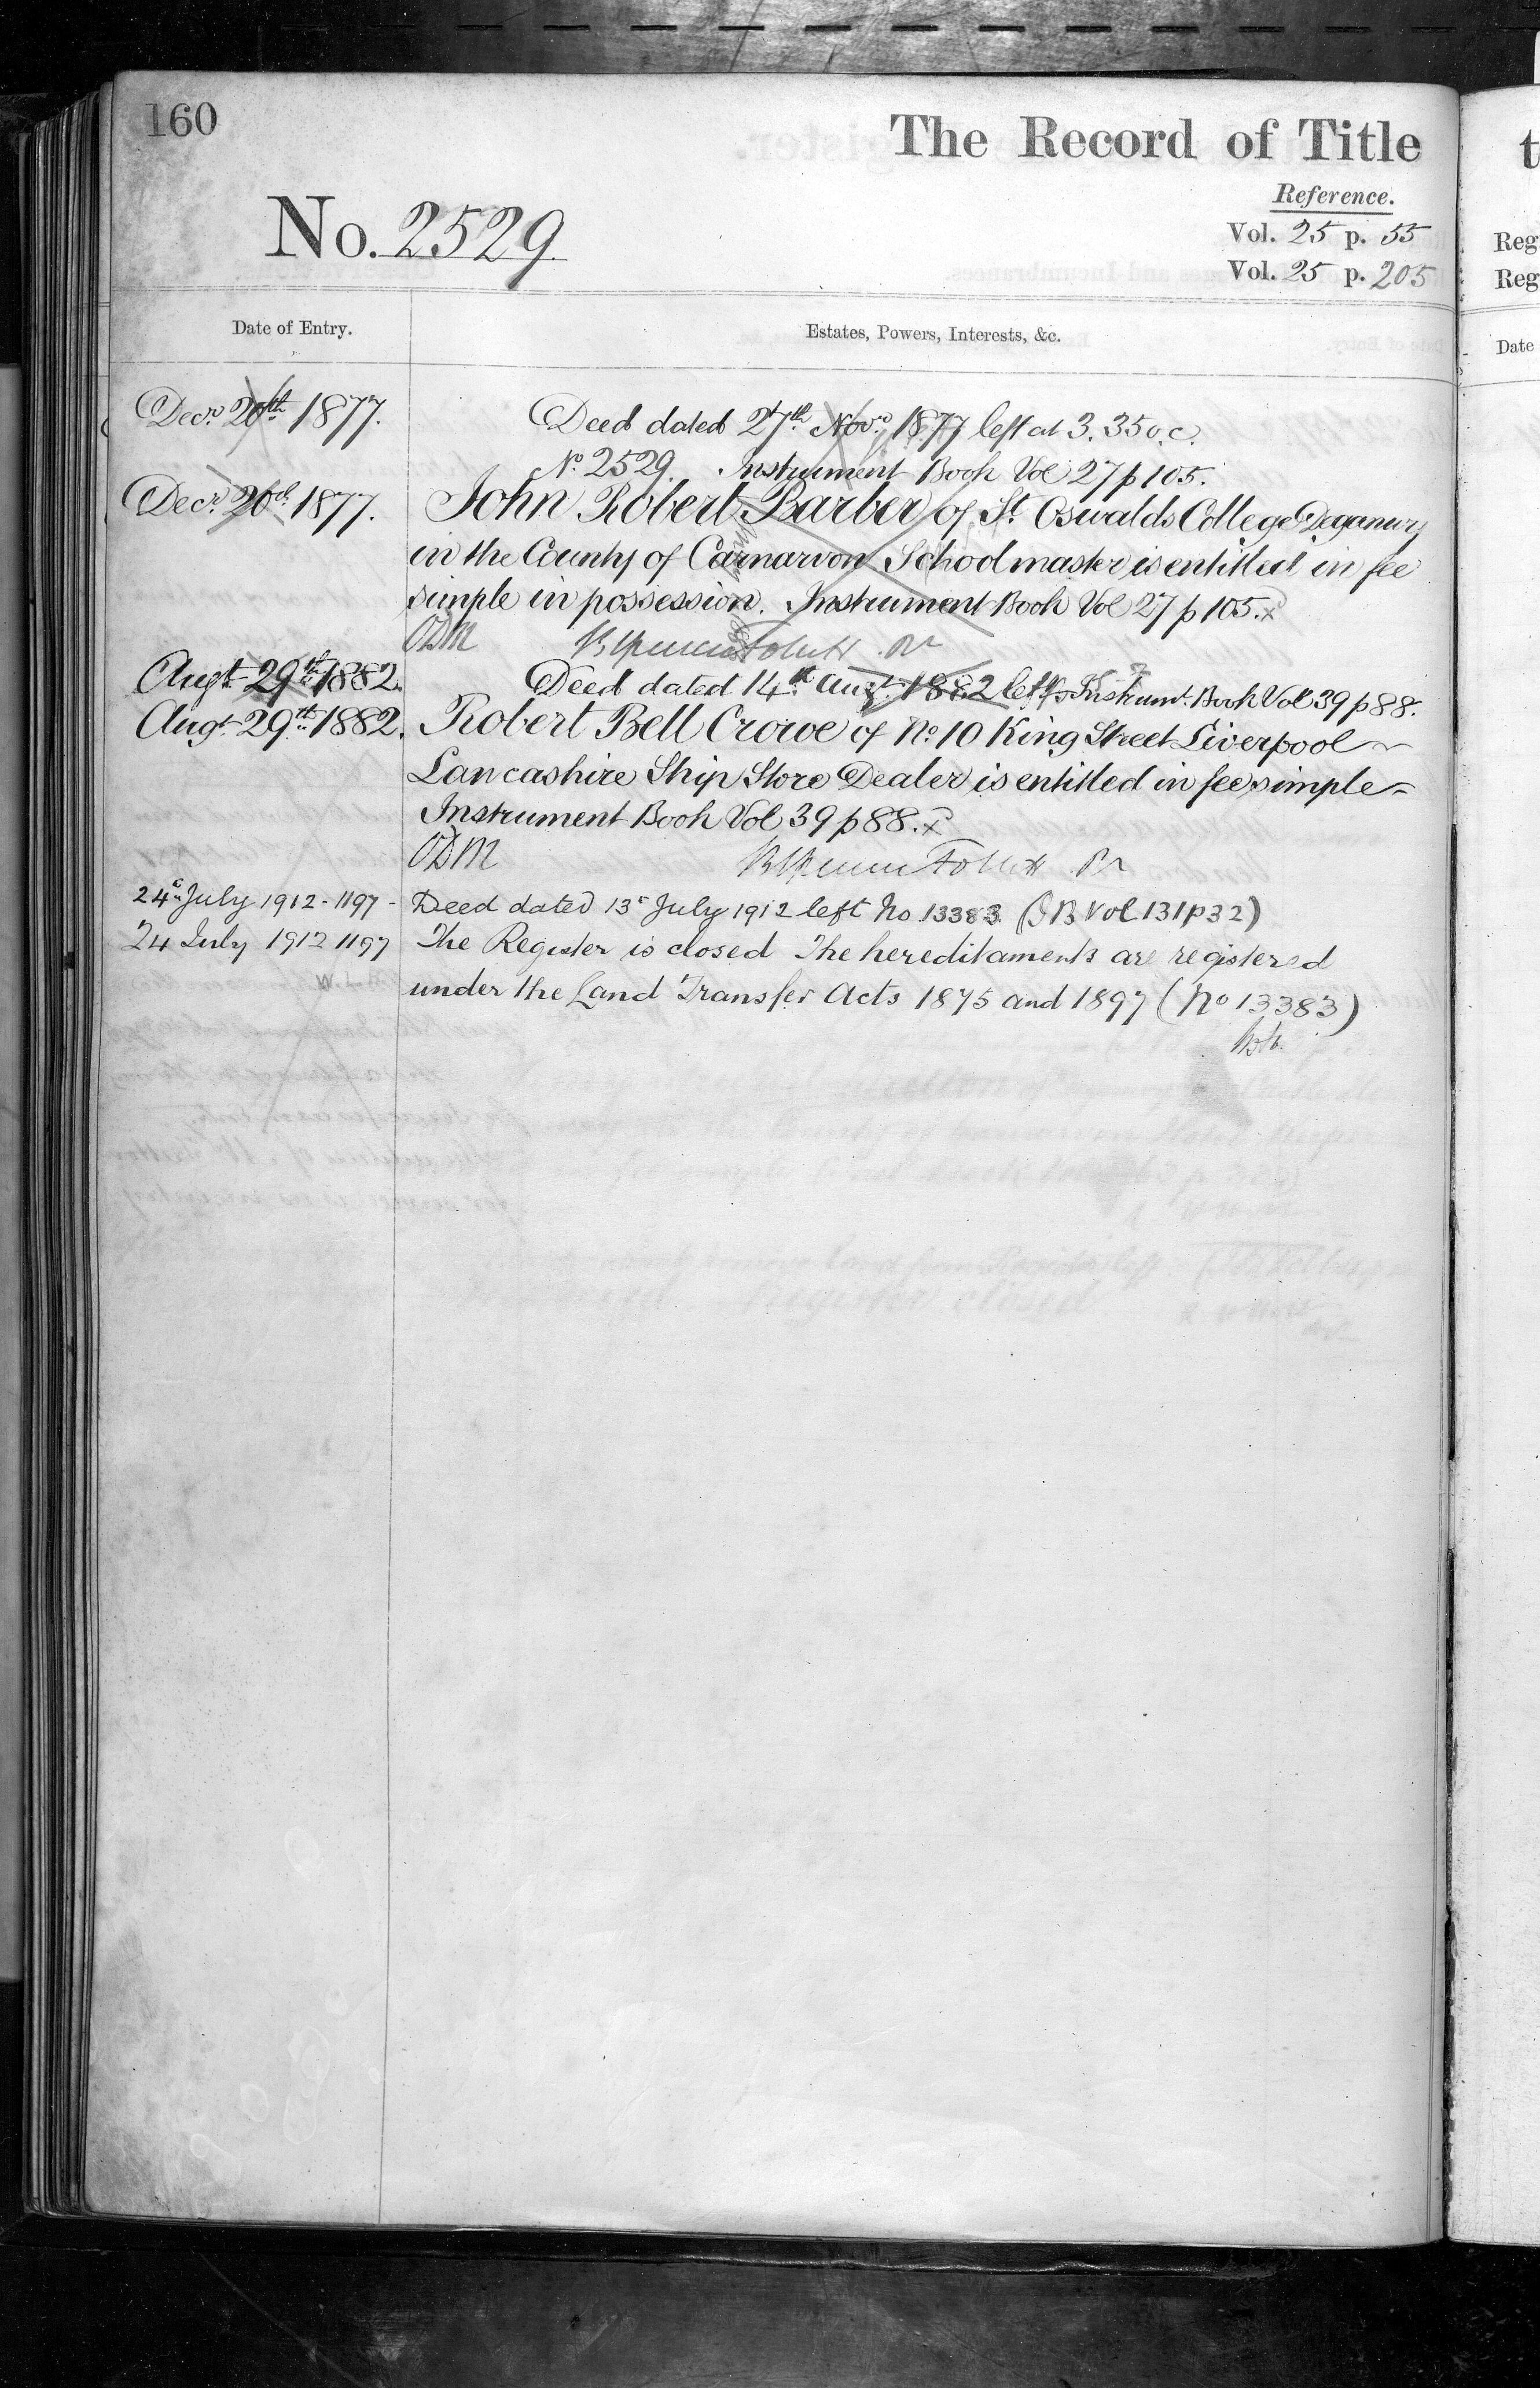 160
The Record of Title
Reference.
No. 2529.
Vol. 25 p. 55
Vol. 25 p. 205
Date of Entry.
Estates, Powers, Interests, &c.
Decr. 20th 1877. Deed dated 27th Novr. 1877 left at 3.35 o.c.
No. 2529. Instrument Book Vol 27 p 105.
Decr. 20th 1877. John Robert Barber of St. Oswalds College Deganwy
in the County of Carnarvon Schoolmaster is entitled in fee
simple in possession. Instrument Book Vol 27 p 105. x
ODM
Augt. 29th 1882. Deed dated 14th Augt. 1882 left Instrumt. Book Vol 39 p 88.
Augt. 29th 1882. Robert Bell Crowe of No. 10 King Street Liverpool
Lancashire Ship Store Dealer is entitled in fee simple
Instrument Book Vol 39 p 88. x
ODM
24th July 1912 - 1197 - Deed dated 13th July 1912 left No 13383 (I B Vol 131 p 32)
24 July 1912 1197 The Register is closed The hereditaments are registered
under the Land Transfer Acts 1875 and 1897 (No 13383)
t
Reg
Reg
Date